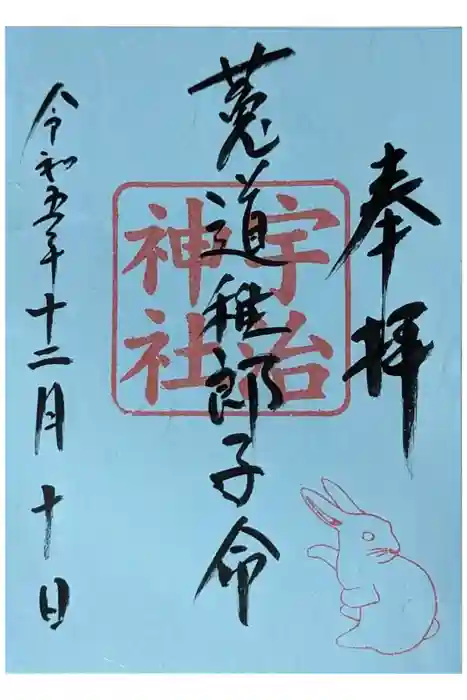 奉拝
菟道稚郎子命
宇治
神社
令和五年十二月十日